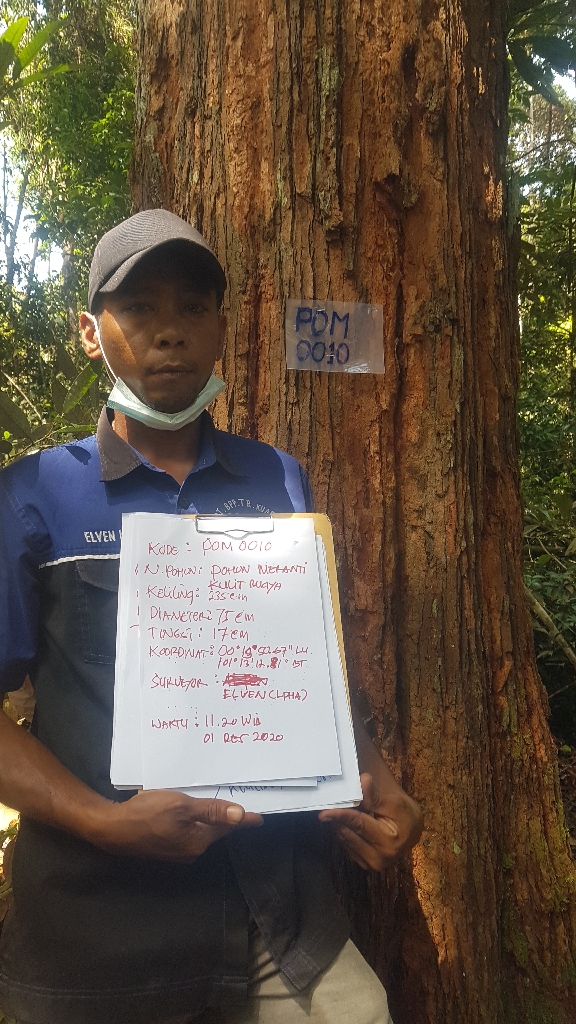 POM
0010
T. BPP. TR. KUA
ELVEN
KODE : POM 0010
N. POHON : POHON MERANTI
KULIT BUAYA
KELILING : 235 cm
DIAMETER : 75 cm
TINGGI : 17 cm
KOORDINAT : 00° 19' 52.67" LU.
101° 13' 12.81" BT
SURVEYOR :
ELVEN (LPHA)
WAKTU : 11.20 WIB
01 DES 2020